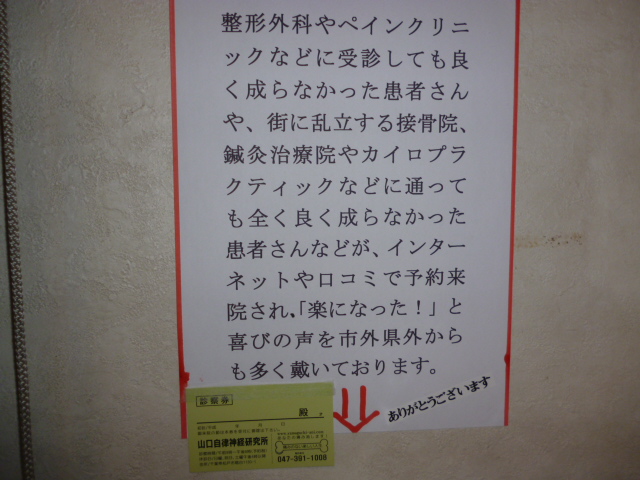 整形外科やペインクリニ
ックなどに受診しても良
く成らなかった患者さん
や、街に乱立する接骨院、
鍼灸治療院やカイロプラ
クティックなどに通って
も全く良く成らなかった
患者さんなどが、インター
ネットや口コミで予約来
院され、「楽になった！」と
喜びの声を市外県外から
も多く戴いております。
ありがとうございます
診察券
殿
山口自律神経研究所
047-391-1008